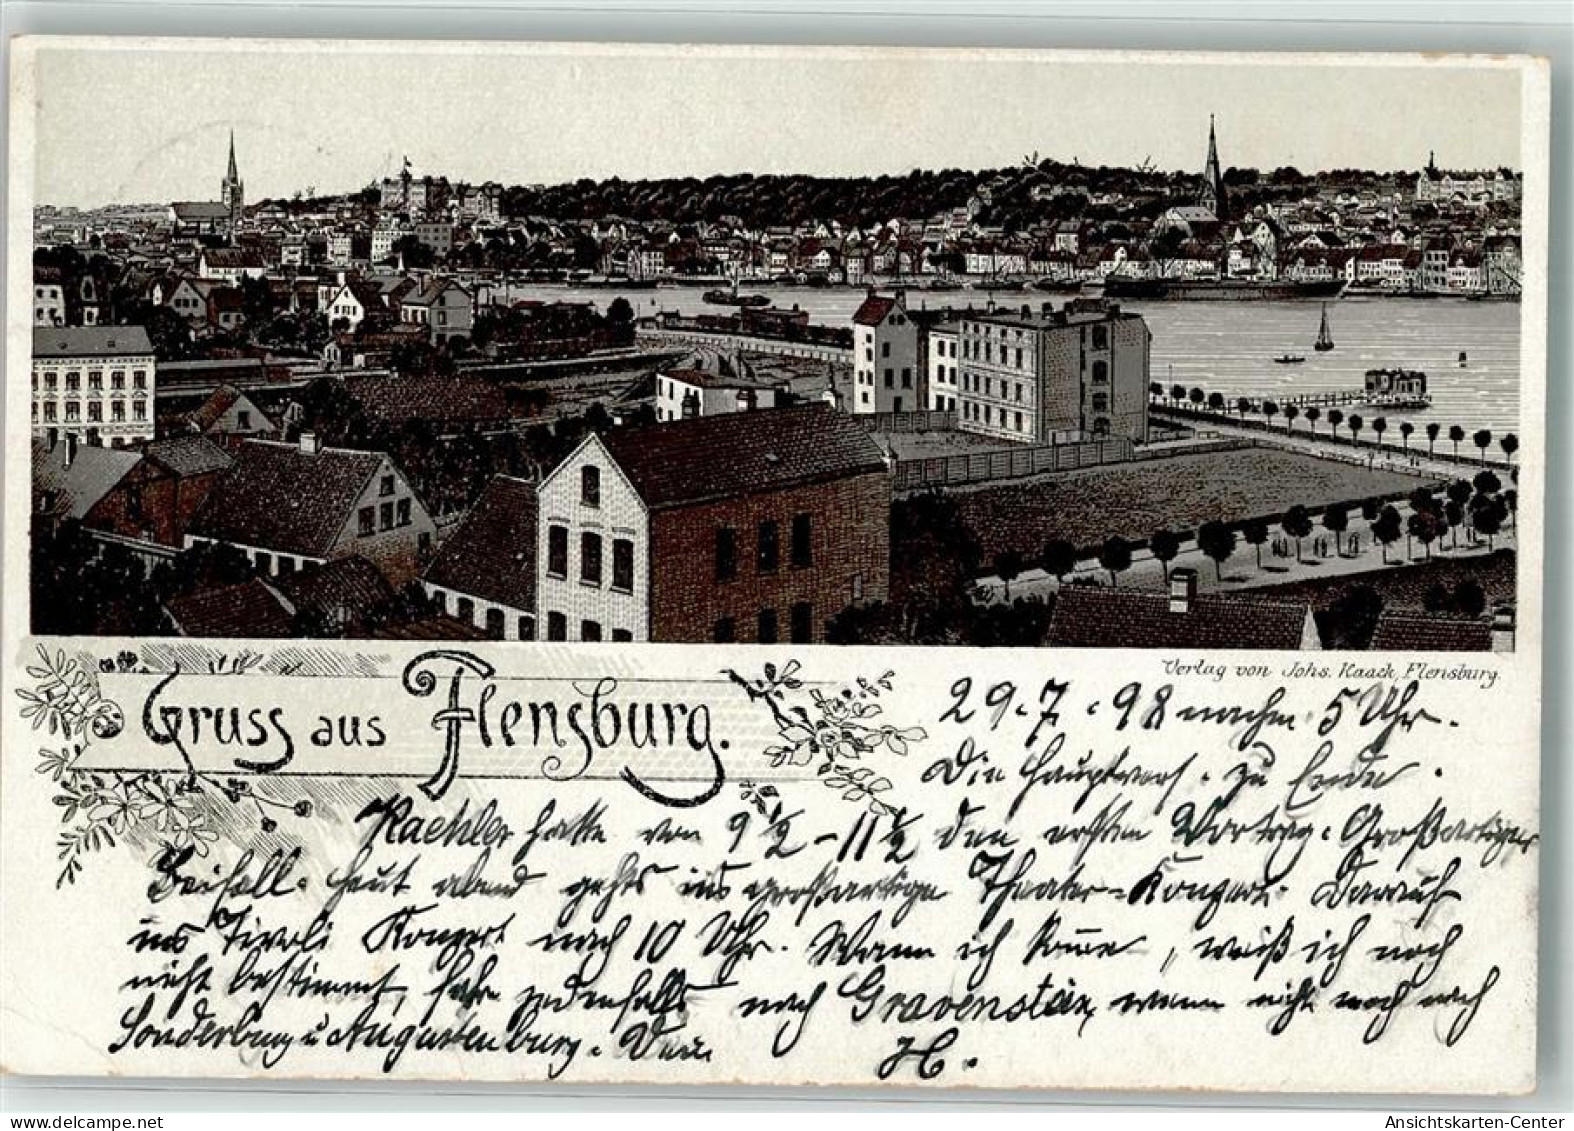 Verlag von Johs. Kaack, Flensburg.
Gruss aus Flensburg.
29.7.98 nachm. 5 Uhr.
Die Hauptvers. zu Ende.
Kaehler hatte von 9 1/2 - 11 1/2 den ersten Vortrag. Großartiger
Beifall. Heut abend gehts ins großartige Theater-Konzert. Darauf
ins Tivoli Konzert nach 10 Uhr. Wann ich komme, weiß ich noch
nicht bestimmt, fahre jedenfalls nach Gravenstein, wenn nicht noch nach
Sonderburg u Augustenburg. Dein H.
delcampe.net
Ansichtskarten-Center